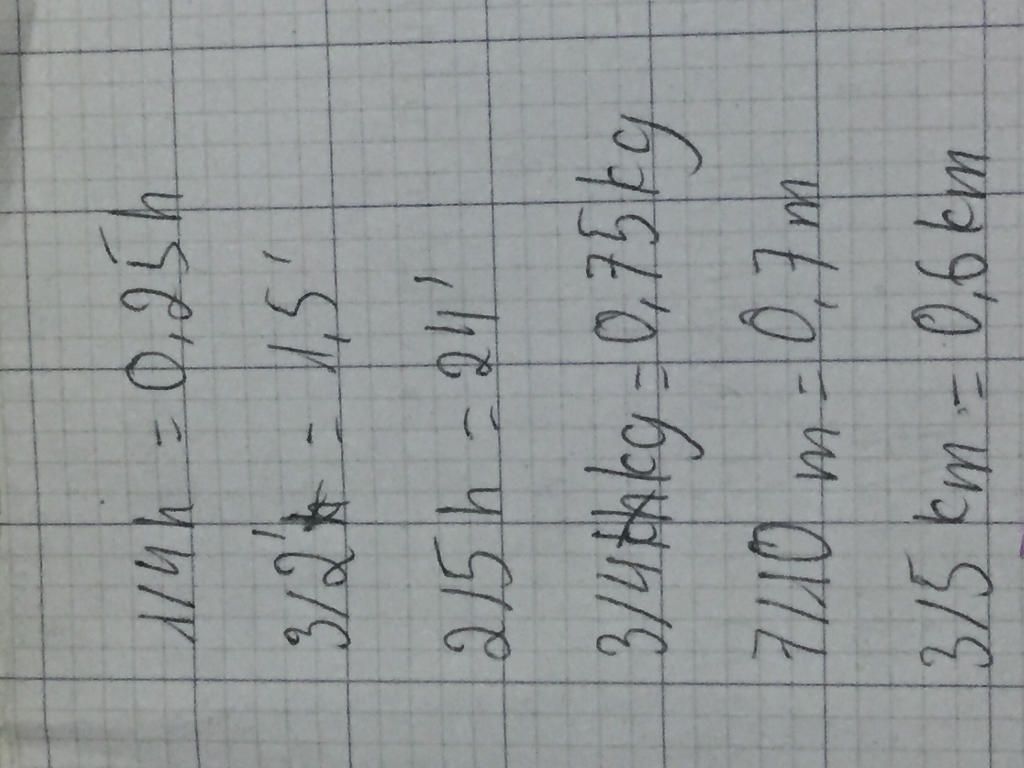 1/4 h = 0,25 h
3/2' = 1,5'
2/5 h = 24'
3/4 kg = 0,75 kg
7/10 m = 0,7 m
3/5 km = 0,6 km